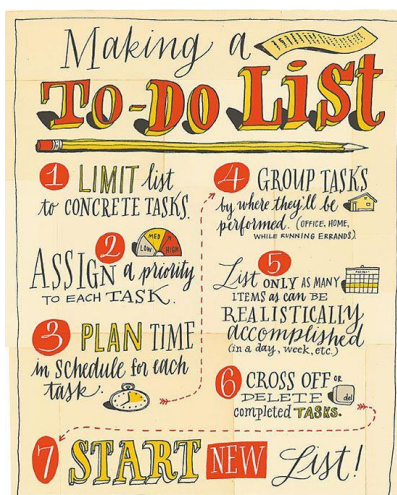 Making a
TO-DO LiSt
1 LIMIT list
to CONCRETE TASKS.
2
LOW MED HIGH
ASSIGN a priority
TO EACH TASK.
3 PLAN TIME
in Schedule for each
task.
4 GROUP TASKS
by where they'll be
performed. (OFFICE, HOME,
WHILE RUNNING ERRANDS)
5
List ONLY AS MANY
ITEMS as can BE
REALISTICALLY
accomplished
(in a day, week, etc.)
6 CROSS OFF OR
DELETE del
completed TASKS.
7 START NEW List!